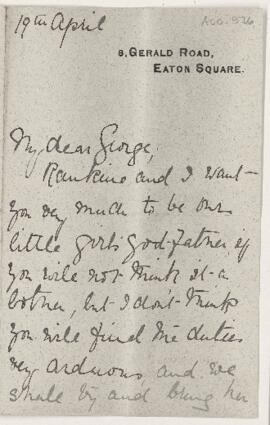 19th April
Acc. 526
8, GERALD ROAD,
EATON SQUARE.
My dear George,
Rankine and I want
you very much to be our
little girl's god-father, if
you will not think it a
bother, but I don't think
you will find the duties
very arduous and we
shall try and bring her